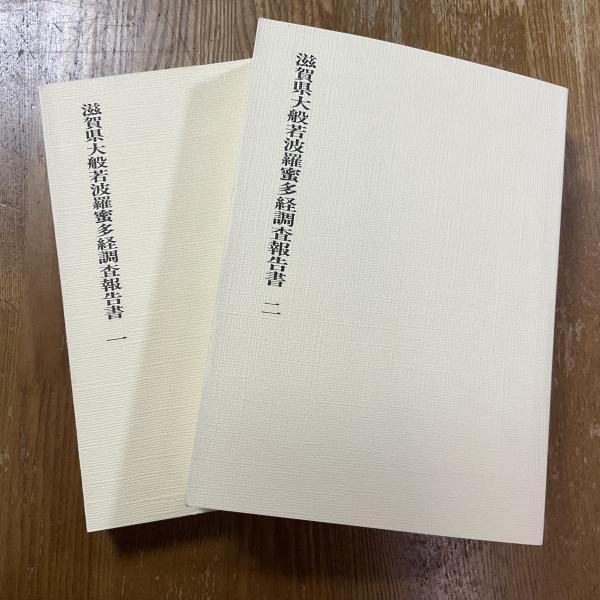 滋賀県大般若波羅蜜多経調査報告書 一
滋賀県大般若波羅蜜多経調査報告書 二